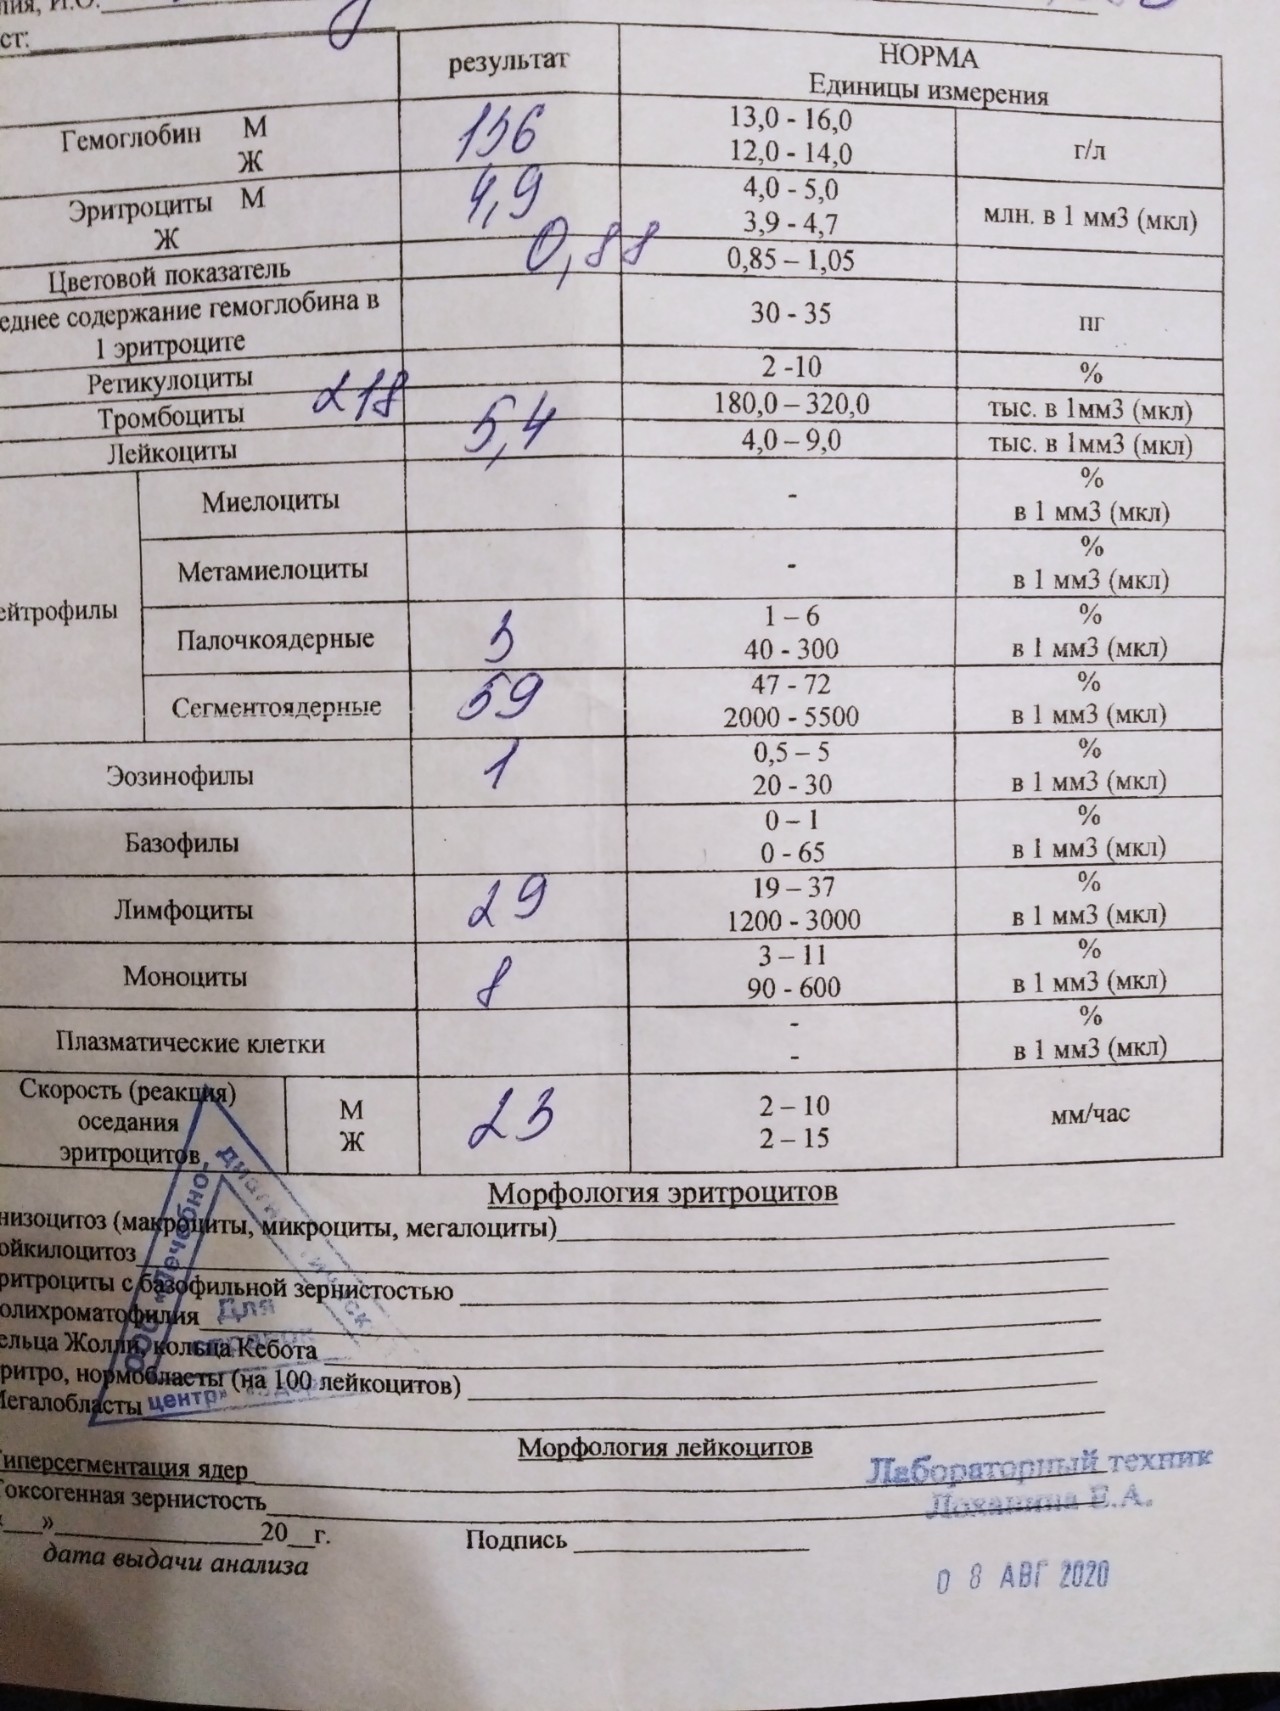 И.О.
ст:
результат
НОРМА
Единицы измерения
Гемоглобин М
Ж
136
13,0 - 16,0
12,0 - 14,0
г/л
Эритроциты М
Ж
4,9
4,0 - 5,0
3,9 - 4,7
млн. в 1 мм3 (мкл)
Цветовой показатель
0,88
0,85 – 1,05
еднее содержание гемоглобина в
1 эритроците
30 - 35
пг
Ретикулоциты
2 -10
%
Тромбоциты
218
180,0 – 320,0
тыс. в 1мм3 (мкл)
Лейкоциты
5,4
4,0 – 9,0
тыс. в 1мм3 (мкл)
ейтрофилы
Миелоциты
-
%
в 1 мм3 (мкл)
Метамиелоциты
-
%
в 1 мм3 (мкл)
Палочкоядерные
3
1 – 6
40 - 300
%
в 1 мм3 (мкл)
Сегментоядерные
59
47 - 72
2000 - 5500
%
в 1 мм3 (мкл)
Эозинофилы
1
0,5 – 5
20 - 30
%
в 1 мм3 (мкл)
Базофилы
0 – 1
0 - 65
%
в 1 мм3 (мкл)
Лимфоциты
29
19 – 37
1200 - 3000
%
в 1 мм3 (мкл)
Моноциты
8
3 – 11
90 - 600
%
в 1 мм3 (мкл)
Плазматические клетки
-
-
%
в 1 мм3 (мкл)
Скорость (реакция)
оседания
эритроцитов
М
Ж
23
2 – 10
2 – 15
мм/час
Морфология эритроцитов
низоцитоз (макроциты, микроциты, мегалоциты)
ойкилоцитоз
ритроциты с базофильной зернистостью
олихроматофилия
ельца Жолли, кольца Кебота
ритро, нормобласты (на 100 лейкоцитов)
Мегалобласты
ООО «Лечебно-
Для
центр»
Морфология лейкоцитов
Гиперсегментация ядер
Токсогенная зернистость
Лабораторный техник
Лоханина Е.А.
«___»______________20__г.
Подпись
дата выдачи анализа
0 8 АВГ 2020